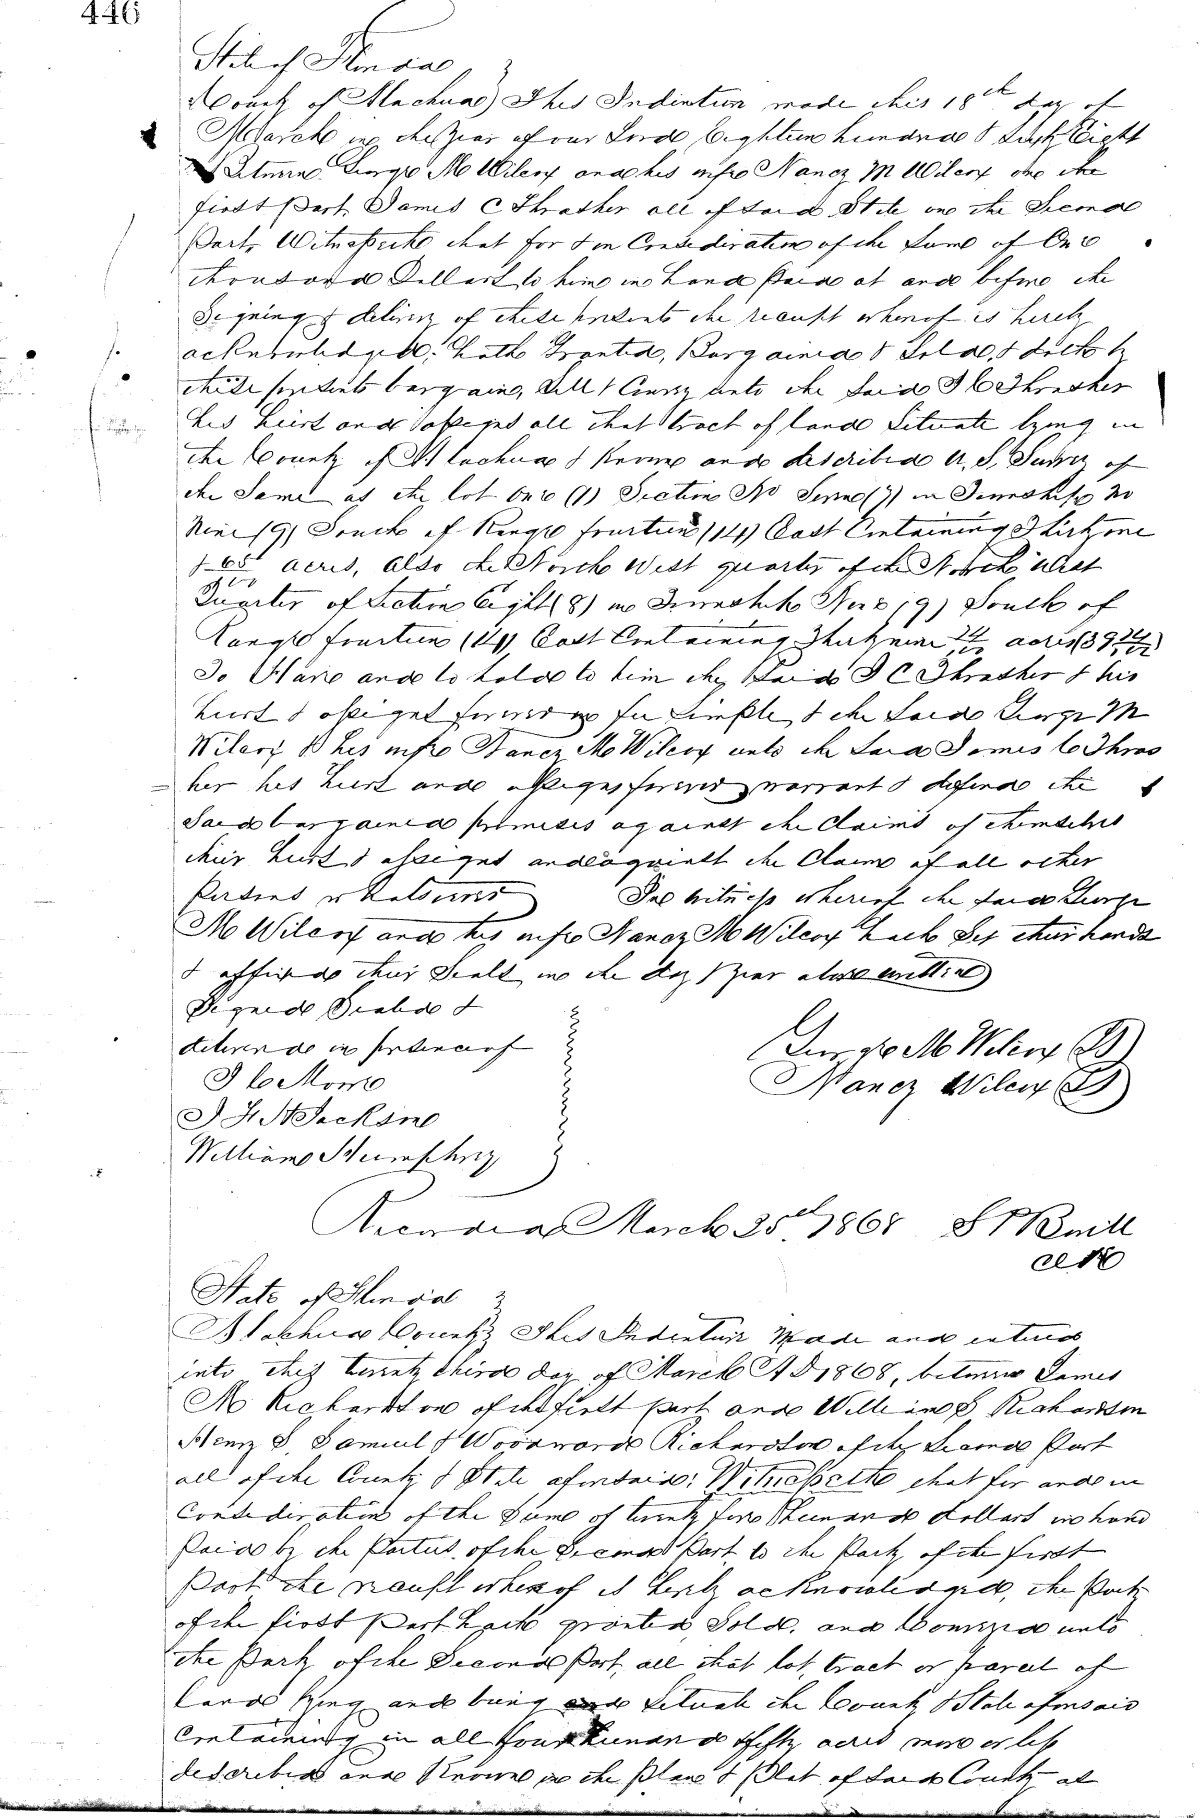 446
State of Florida
County of Alachua This Indenture made this 18th day of
March in the Year of our Lord Eighteen hundred & Sixty Eight
Between George M Wilcox and his wife Nancy M Wilcox one the
first Part James C Thrasher all of said State one the Second
Part, Witnesseth that for & in Consideration of the Sum of One
thousand Dollars to him in hand Paid at and before the
Signing & delivery of these presents the receipt whereof is hereby
acknowledged: hath Granted, Bargained & Sold, & doth by
these presents bargain, Sell & Convey unto the Said J C Thrasher
his heirs and assigns all that tract of land Situate lying in
the County of Alachua & Known and described U. S. Survey of
the Same as the lot One (1) Section No Seven (7) in Township No
Nine (9) South of Range fourteen (14) East Containing Thirty one
& 65/100 acres, also the North West quarter of the North West
Quarter of Section Eight (8) in Township Nine (9) South of
Range fourteen (14) East Containing Thirty nine 24/100 acres (39 24/100)
To Have and to hold to him the Said J C Thrasher & his
heirs & assigns forever in fee Simple, & the Said George M
Wilcox & his wife Nancy M Wilcox unto the Said James C Thras
her his heirs and assigns forever warrant & defend the
Said bargained premises against the Claims of themselves
their heirs & assigns and against the Claims of all other
Persons whatsoever In witness whereof the said George
M Wilcox and his wife Nancy M Wilcox hath Set their hands
& affixed their Seals in the day & Year above written
Signed Sealed &
delivered in presence of
George M Wilcox
Nancy Wilcox
J H A Jackson
William Humphrey
Recorded March 25th 1868
Clk
State of Florida
Alachua County This Indenture Made and entered
into this twenty third day of March A D 1868, between James
M Richardson of the first part and William S Richardson
Henry S. Samuel & Woodward Richardson of the Second Part
all of the County & State aforesaid: Witnesseth that for and in
Consideration of the Sum of twenty five Hundred dollars in hand
Paid by the Parties of the Second Part to the Party of the first
Part the receipt whereof is hereby acknowledged, the Party
of the first Part hath granted, Sold, and Conveyed unto
the Party of the Second Part, all that lot, tract or parcel of
land lying and being and Situate the County & State aforesaid
Containing in all four hundred & fifty acres more or less
described and Known in the Plan & Plat of said County as